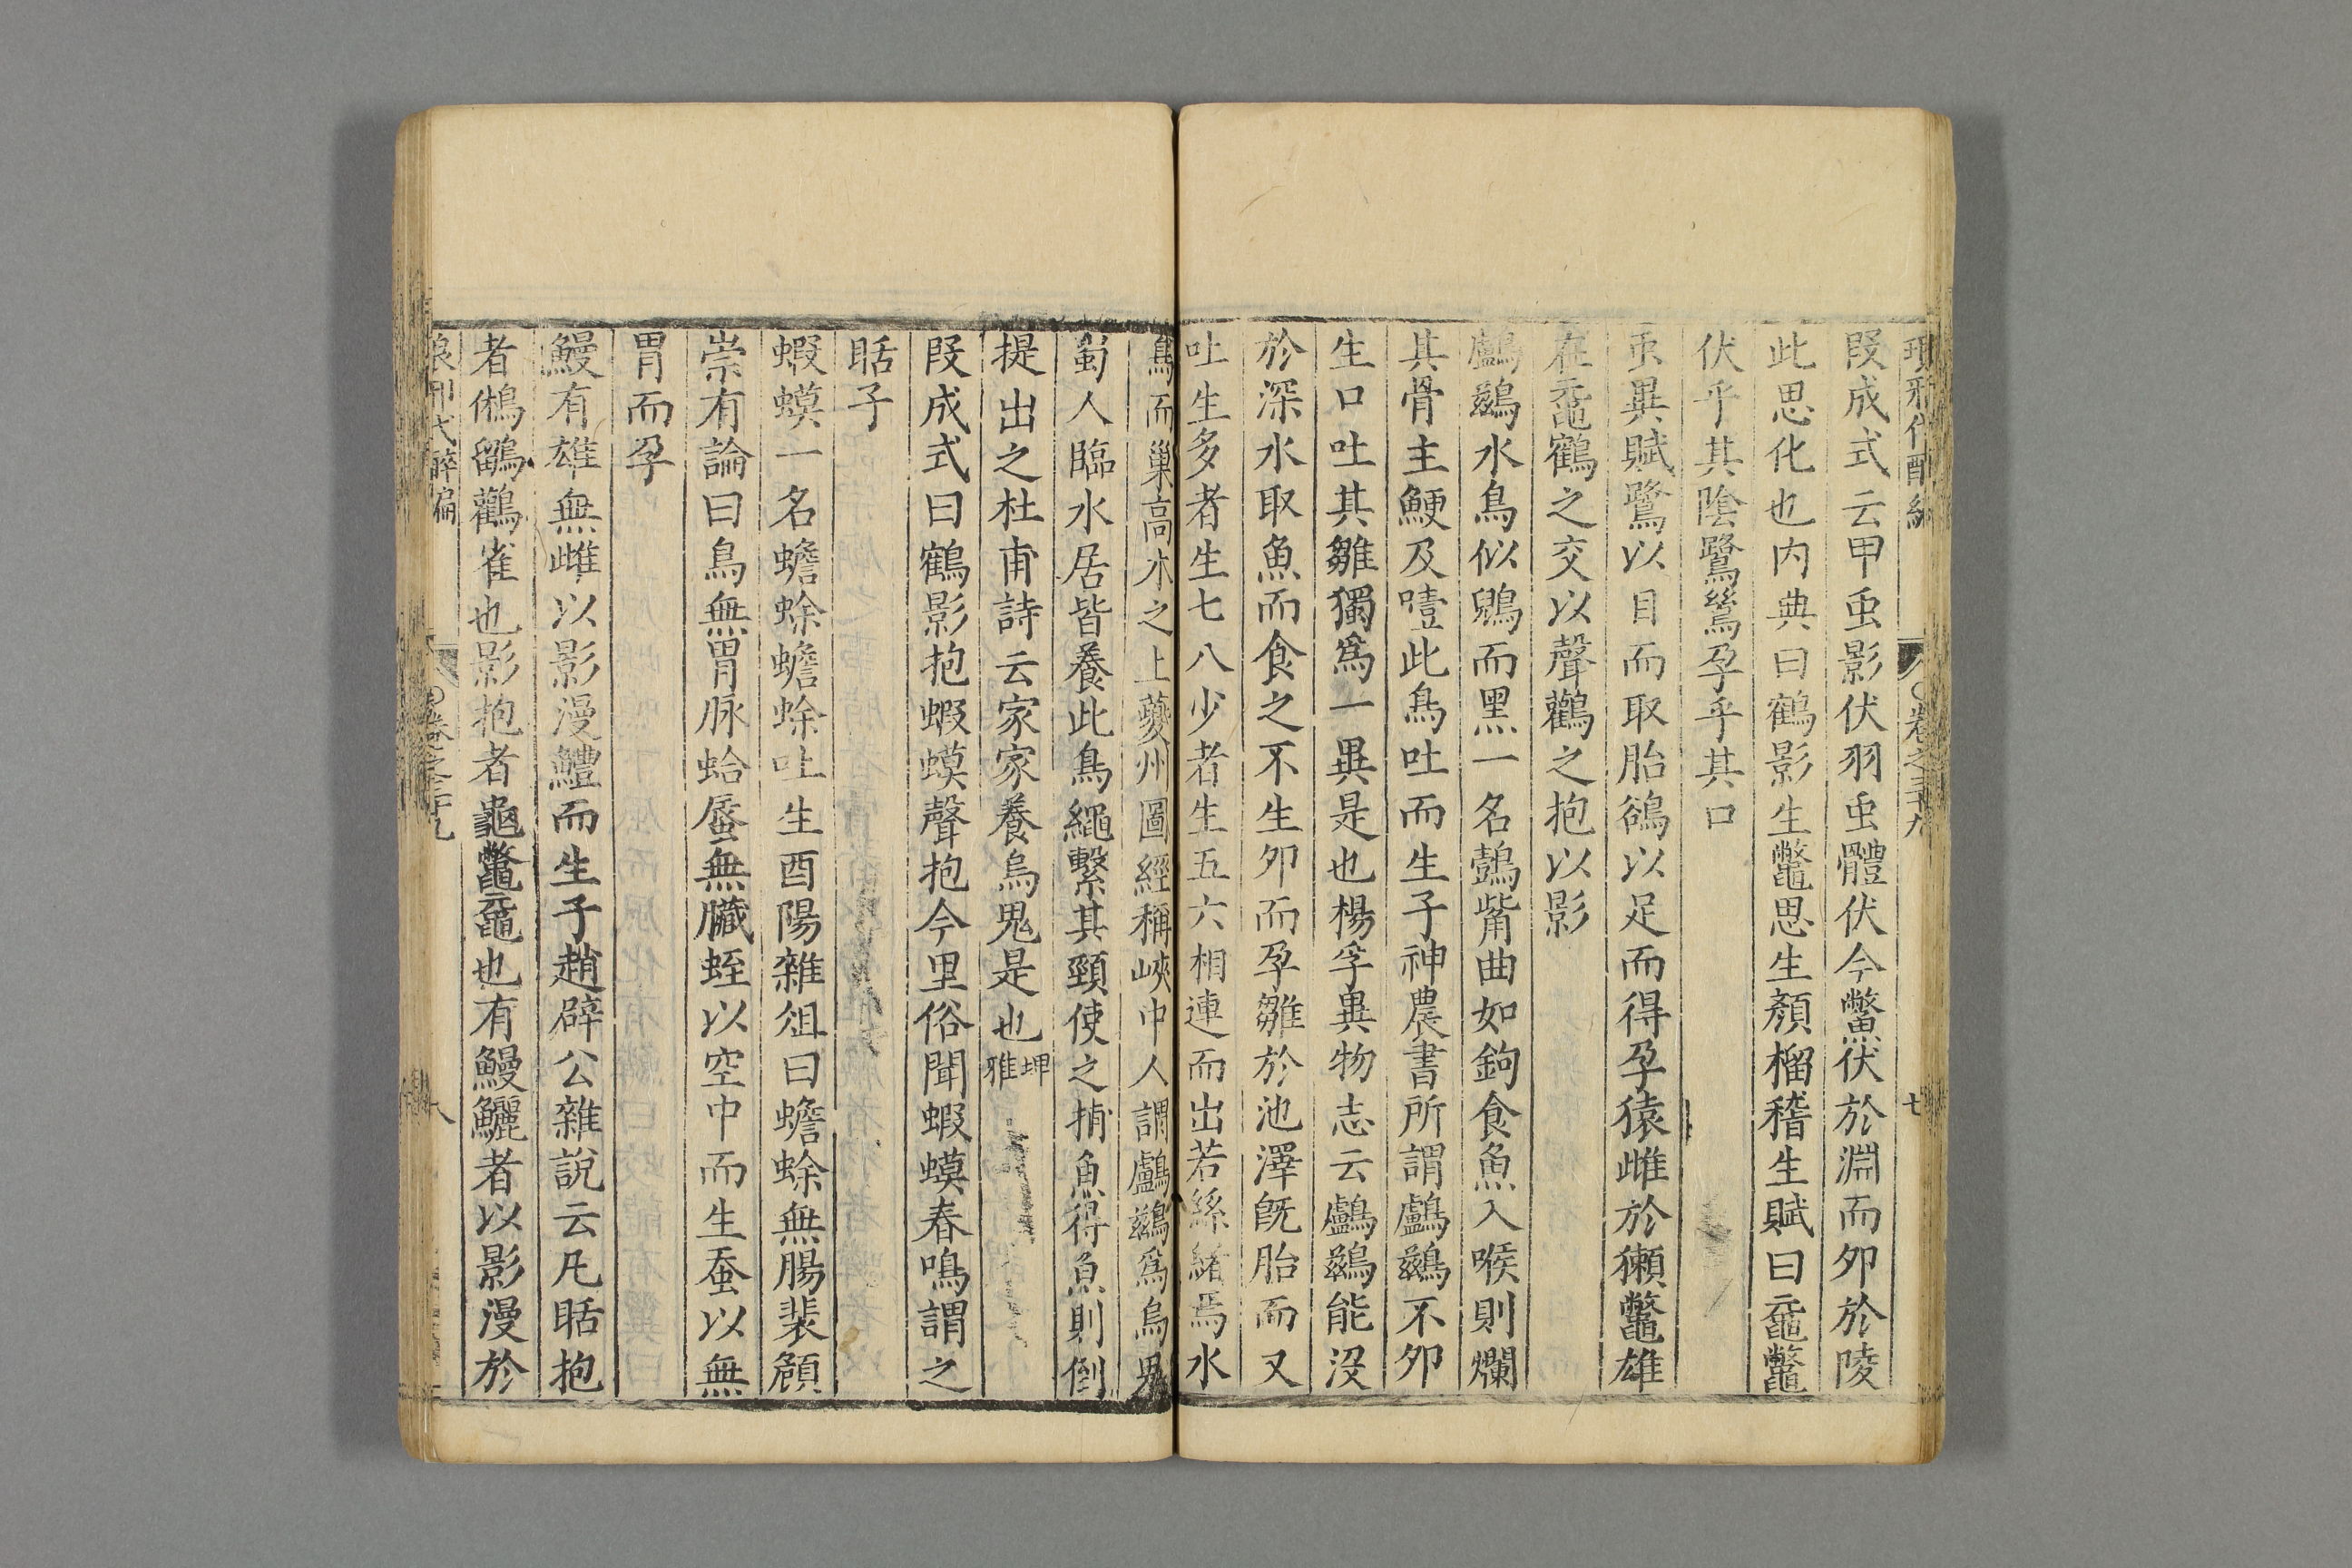 琅邪代醉編 卷之三十九 七
段成式云甲䖝影伏羽䖝體伏今鱉伏於淵而夘於陵
此思化也内典曰鶴影生鼈思生顏榴稽生賦曰黿鼈
伏乎其陰鷺鷥孕乎其口
䖝異賦鷺以目而取胎鵒以足而得孕猿雌於獺鼈雄
在黿鶴之交以聲鸛之抱以影
鸕鷀水鳥似鶂而黑一名鷧觜曲如鉤食魚入喉則爛
其骨主鯁及噎此鳥吐而生子神農書所謂鸕鷀不夘
生口吐其雛獨爲一異是也楊孚異物志云鸕鷀能沒
於深水取魚而食之不生夘而孕雛於池澤旣胎而又
吐生多者生七八少者生五六相連而出若絲緒焉水
鳥而巢高木之上夔州圖經稱峽中人謂鸕鷀爲烏鬼
蜀人臨水居皆養此鳥繩繫其頸使之捕魚得魚則倒
提出之杜甫詩云家家養烏鬼是也埤雅
段成式曰鶴影抱蝦蟆聲抱今里俗聞蝦蟆春鳴謂之
聒子
蝦蟆一名蟾蜍蟾蜍吐生酉陽雜俎曰蟾蜍無腸裴頠
崇有論曰鳥無胃脉蛤蜃無臟蛭以空中而生蚕以無
胃而孕
鰻有雄無雌以影漫鱧而生子趙辟公雜說云凡聒抱
者鵂鶹鸛雀也影抱者龜鼈黿也有鰻鱺者以影漫於
卷之三十九 八